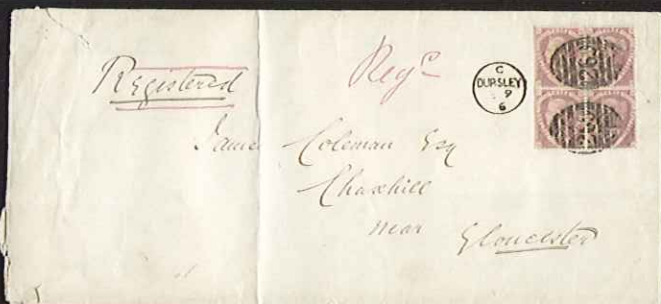 Registered
Regd
C
DURSLEY
9
6
James Coleman Esq
Chaxhill
near
Gloucester